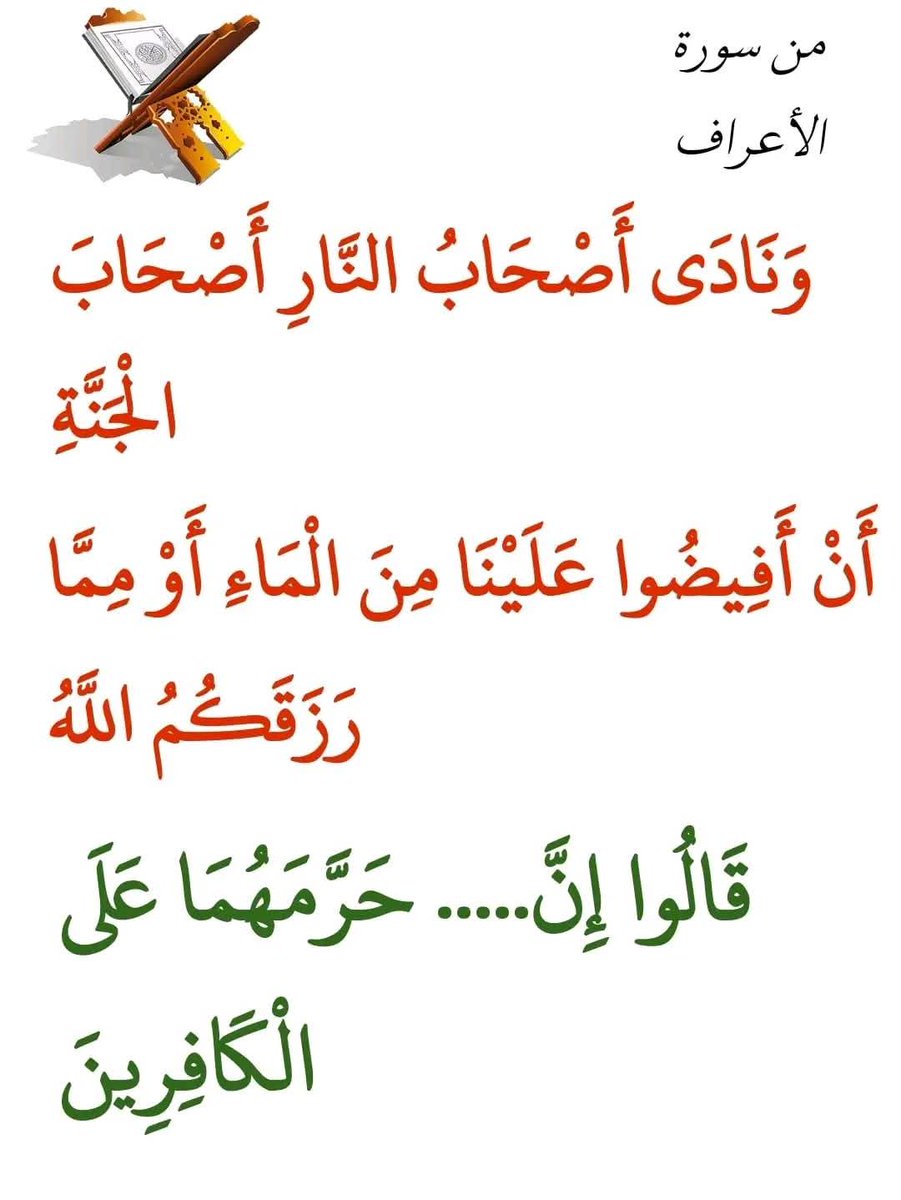 من سورة
الأعراف
وَنَادَى أَصْحَابُ النَّارِ أَصْحَابَ
الْجَنَّةِ
أَنْ أَفِيضُوا عَلَيْنَا مِنَ الْمَاءِ أَوْ مِمَّا
رَزَقَكُمُ اللَّهُ
قَالُوا إِنَّ..... حَرَّمَهُمَا عَلَى
الْكَافِرِينَ